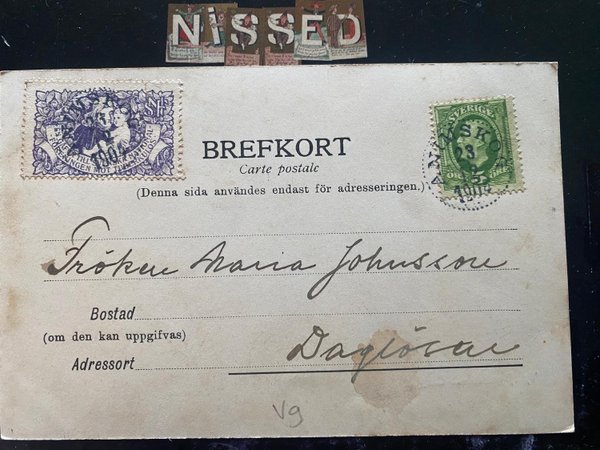 NiSSED
BREFKORT
Carte postale
(Denna sida användes endast för adresseringen.)
SVERIGE
5 ÖRE
23
1904
1904
Fröken Maria Johnsson
Bostad
(om den kan uppgifvas)
Daglösen
Adressort
V9